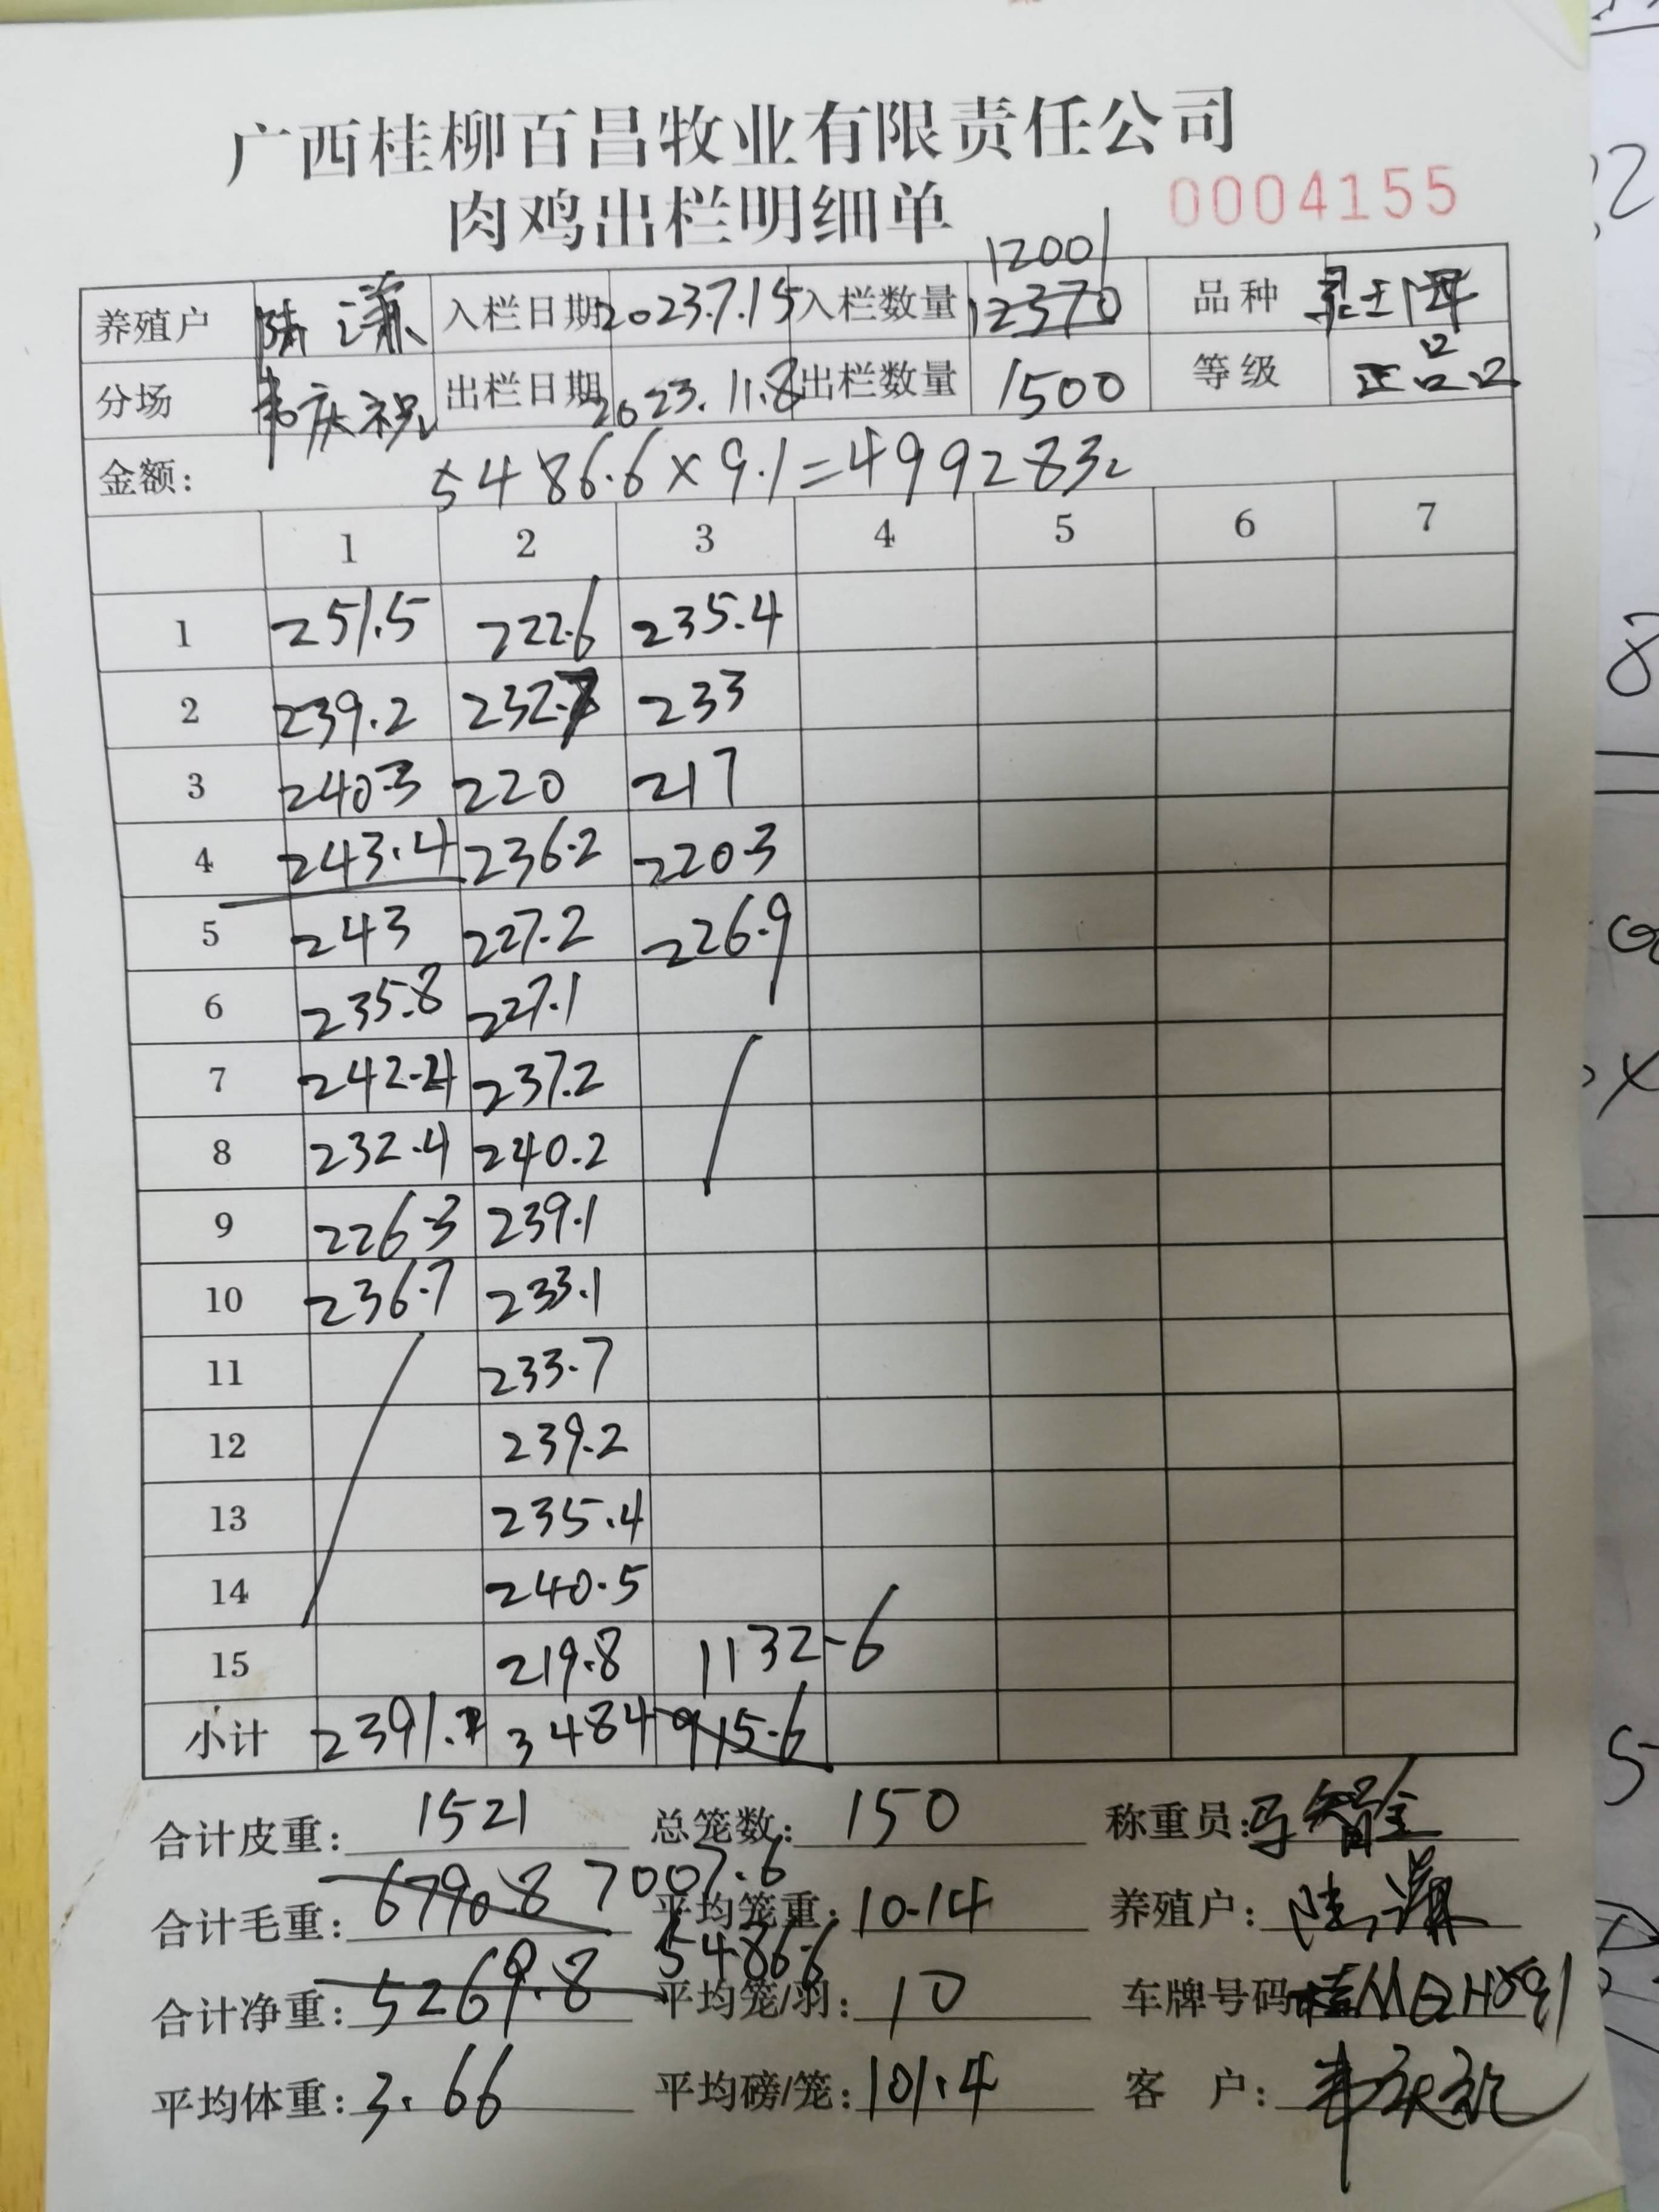 广西桂柳百昌牧业有限责任公司
肉鸡出栏明细单 0004155
12001
养殖户 陆谦 入栏日期 2023.7.15 入栏数量 12370 品种
分场 韦庆祝 出栏日期 2023.11.8 出栏数量 1500 等级 正品
金额: 5486.6×9.1=49928元
1 2 3 4 5 6 7
1 251.5 222.6 235.4
2 239.2 232.7 233
3 240.3 220 217
4 243.4 236.2 220.3
5 243 227.2 226.9
6 235.8 227.1
7 242.4 237.2
8 232.4 240.2
9 226.3 239.1
10 236.7 233.1
11 233.7
12 239.2
13 235.4
14 240.5
15 219.8 1132.6
小计 2391 3484 915.6
合计皮重: 1521 总笼数: 150 称重员:
合计毛重: 6790.8 7007.6 平均笼重: 10.14 养殖户: 陆谦
合计净重: 5269.8 5486.6 平均笼/羽: 10 车牌号码:
平均体重: 3.66 平均磅/笼: 101.4 客 户: 韦庆祝